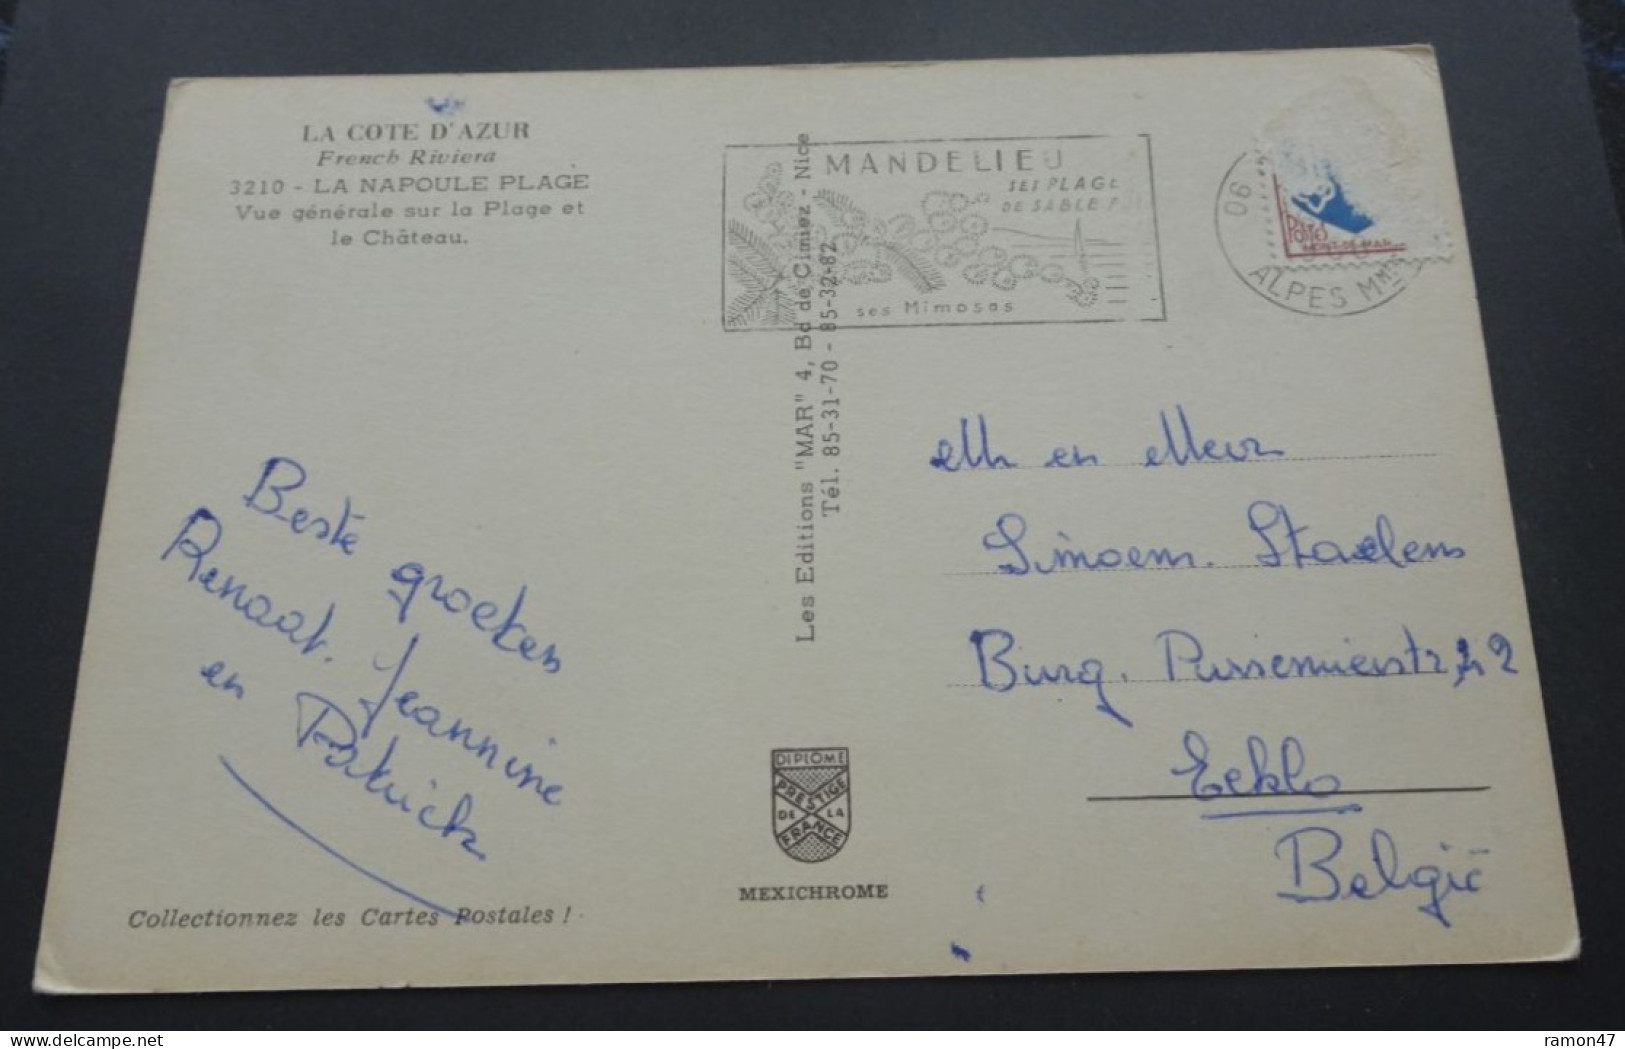 LA COTE D'AZUR
French Riviera
3210 - LA NAPOULE PLAGE
Vue générale sur la Plage et
le Château.
MANDELIEU
SES PLAGE
DE SABLE F
ses Mimosas
06
ALPES Mmes
Postes
MONT-DE-MAR
Les Editions "MAR" 4, Bd de Cimiez - Nice
Tél. 85-31-70 - 85-32-82
Beste groeten
Renaat. Jeannine
en Patrick
Mr en Mevr
Simoens. Staelens
Burg. Pussemierstr 22
Eeklo
België
DIPLOME
PRESTIGE
DE LA
FRANCE
MEXICHROME
Collectionnez les Cartes Postales !
ramon47